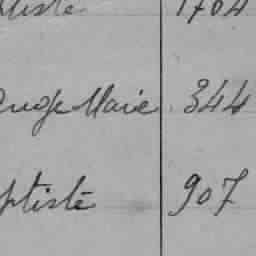 tiste 1704
Ange Marie 344
ptiste 907